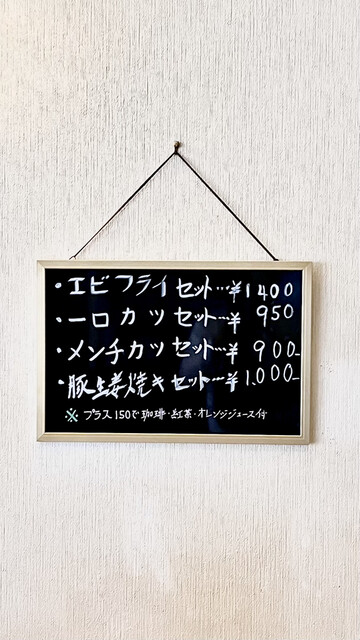 ・エビフライセット…¥1400
・一口カツセット…¥950
・メンチカツセット…¥900-
・豚生姜焼きセット…¥1,000-
※プラス150で珈琲・紅茶・オレンジジュース付